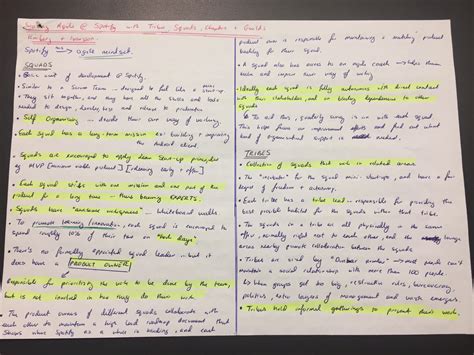 Scaling Agile @ Spotify with Tribes, Squads, Chapters + Guilds
Spotify has → agile mindset
SQUADS
• Basic unit of development @ Spotify.
• Similar to a Scrum Team - designed to feel like a mini startup
• They sit together, and they have all the skills and tools
needed to design, develop, test and release to production
• Self Organising ... decide their own way of working.
• Each squad has a long-term mission ex: building + improving
the Android client.
• Squads are encouraged to apply Lean Start-up principles
eg MVP (minimum viable product) [releasing early + often]
• Each squad sticks with one mission and one part of the
product for a long time - thus becoming EXPERTS.
• Squads have "awesome workspaces" ... whiteboard walls
• To promote learning / innovation, each squad is encouraged to
spend roughly 10% of their time on "hack days"
• There's no formally appointed squad leader.. but it
does have a PRODUCT OWNER
responsible for prioritising the work to be done by the team,
but is not involved in how they do their work.
• The product owners of different squads collaborate with
each other to maintain a high level roadmap document that
shows where Spotify as a whole is heading, and each
product owner is responsible for maintaining a matching product
backlog for their squad.
• A squad also has access to an agile coach → helps them
evolve and improve their way of working
• Ideally each squad is fully autonomous with direct contact
with their stakeholders, and no blocking dependencies to other
squads
• To aid this, quarterly survey is run with each squad.
This helps focus on improvement efforts and find out what
kind of organisational support is needed.
TRIBES
• Collection of squads that work in related areas.
• The "incubator" for the squad mini-startups, and have a fair
degree of freedom + autonomy.
• Each tribe has a tribe lead - responsible for providing the
best possible habitat for the squads within that tribe.
• The squads in a tribe are all physically in the same
office, normally right next to each other, and the lounge
areas nearby promote collaboration between the squads.
• Tribes are sized by "Dunbar number" → most people can't
maintain a social relationship with more than 100 people
↳ When groups get too big, restrictive rules, bureaucracy,
politics, extra layers of management and waste emerges.
• Tribes hold informal gatherings to present their work